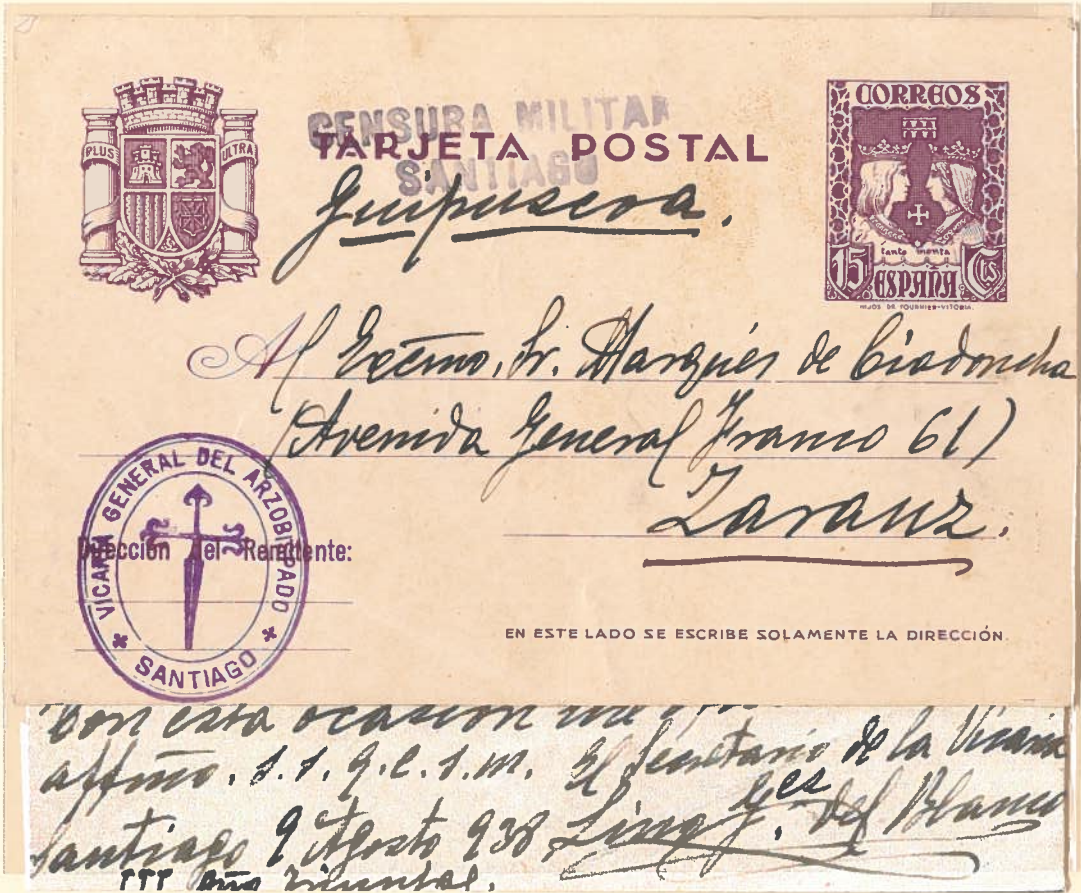 CORREOS
CENSURA MILITAR
TARJETA POSTAL
SANTIAGO
PLUS ULTRA
Guipuscoa.
tanto monta
15 ESPAÑA Cts
HIJOS DE FOURNIER-VITORIA.
Al Excmo. Sr. Marqués de Ciadoncha
(Avenida General Franco 61)
Zarauz.
VICARIA GENERAL DEL ARZOBISPADO
SANTIAGO
Dirección del Remitente:
EN ESTE LADO SE ESCRIBE SOLAMENTE LA DIRECCIÓN.
Con esta ocasion me
affmo. s.s. q.e.s.m. El Secretario de la Vicaria
Santiago 9 Agosto 938 Lino Gª. del Blanco
III Año Triunfal.